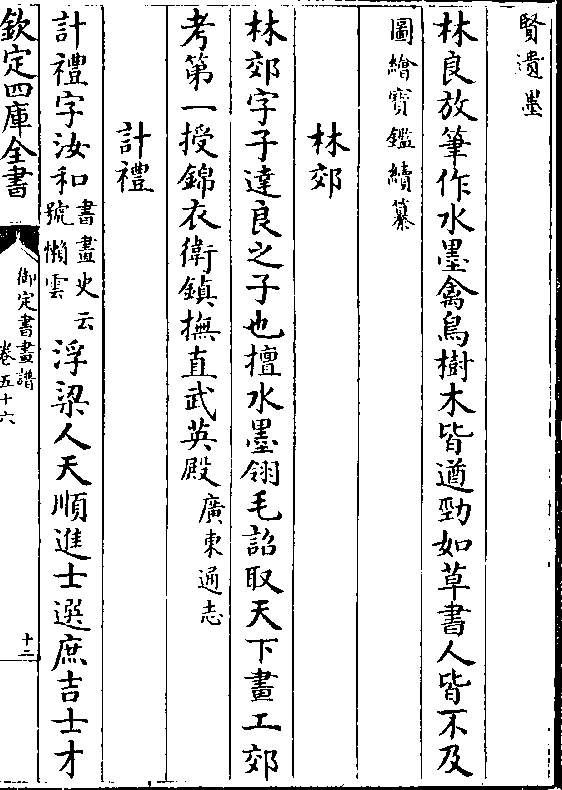 賢遺墨
林良放筆作水墨禽鳥樹木皆遒勁如草書人皆不及
圖繪寶鑑續纂
林郊
林郊字子達良之子也擅水墨翎毛詔取天下畫工郊
考第一授錦衣衛鎮撫直武英殿廣東通志
計禮
計禮字汝和書畫史云號懶雲浮梁人天順進士選庶吉士才
欽定四庫全書
御定書畫譜
卷五十六
十二